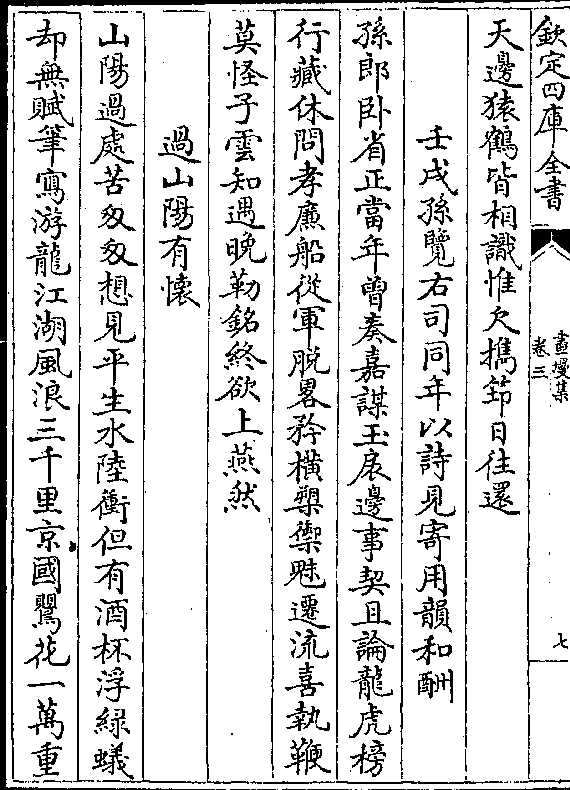 欽定四庫全書
畫墁集
卷三
七
天邊猿鶴皆相識惟欠攜筇日往還
壬戌孫覽右司同年以詩見寄用韻和酬
孫郎卧省正當年曽奏嘉謀玉扆邊事契且論龍虎榜
行藏休問孝廉船從軍脱畧矜横槊禦魅遷流喜執鞭
莫怪子雲知遇晚勒銘終欲上燕然
過山陽有懐
山陽過處苦匆匆想見平生水陸衝但有酒杯浮緑蟻
却無賦筆寫游龍江湖風浪三千里京國鶯花一萬重